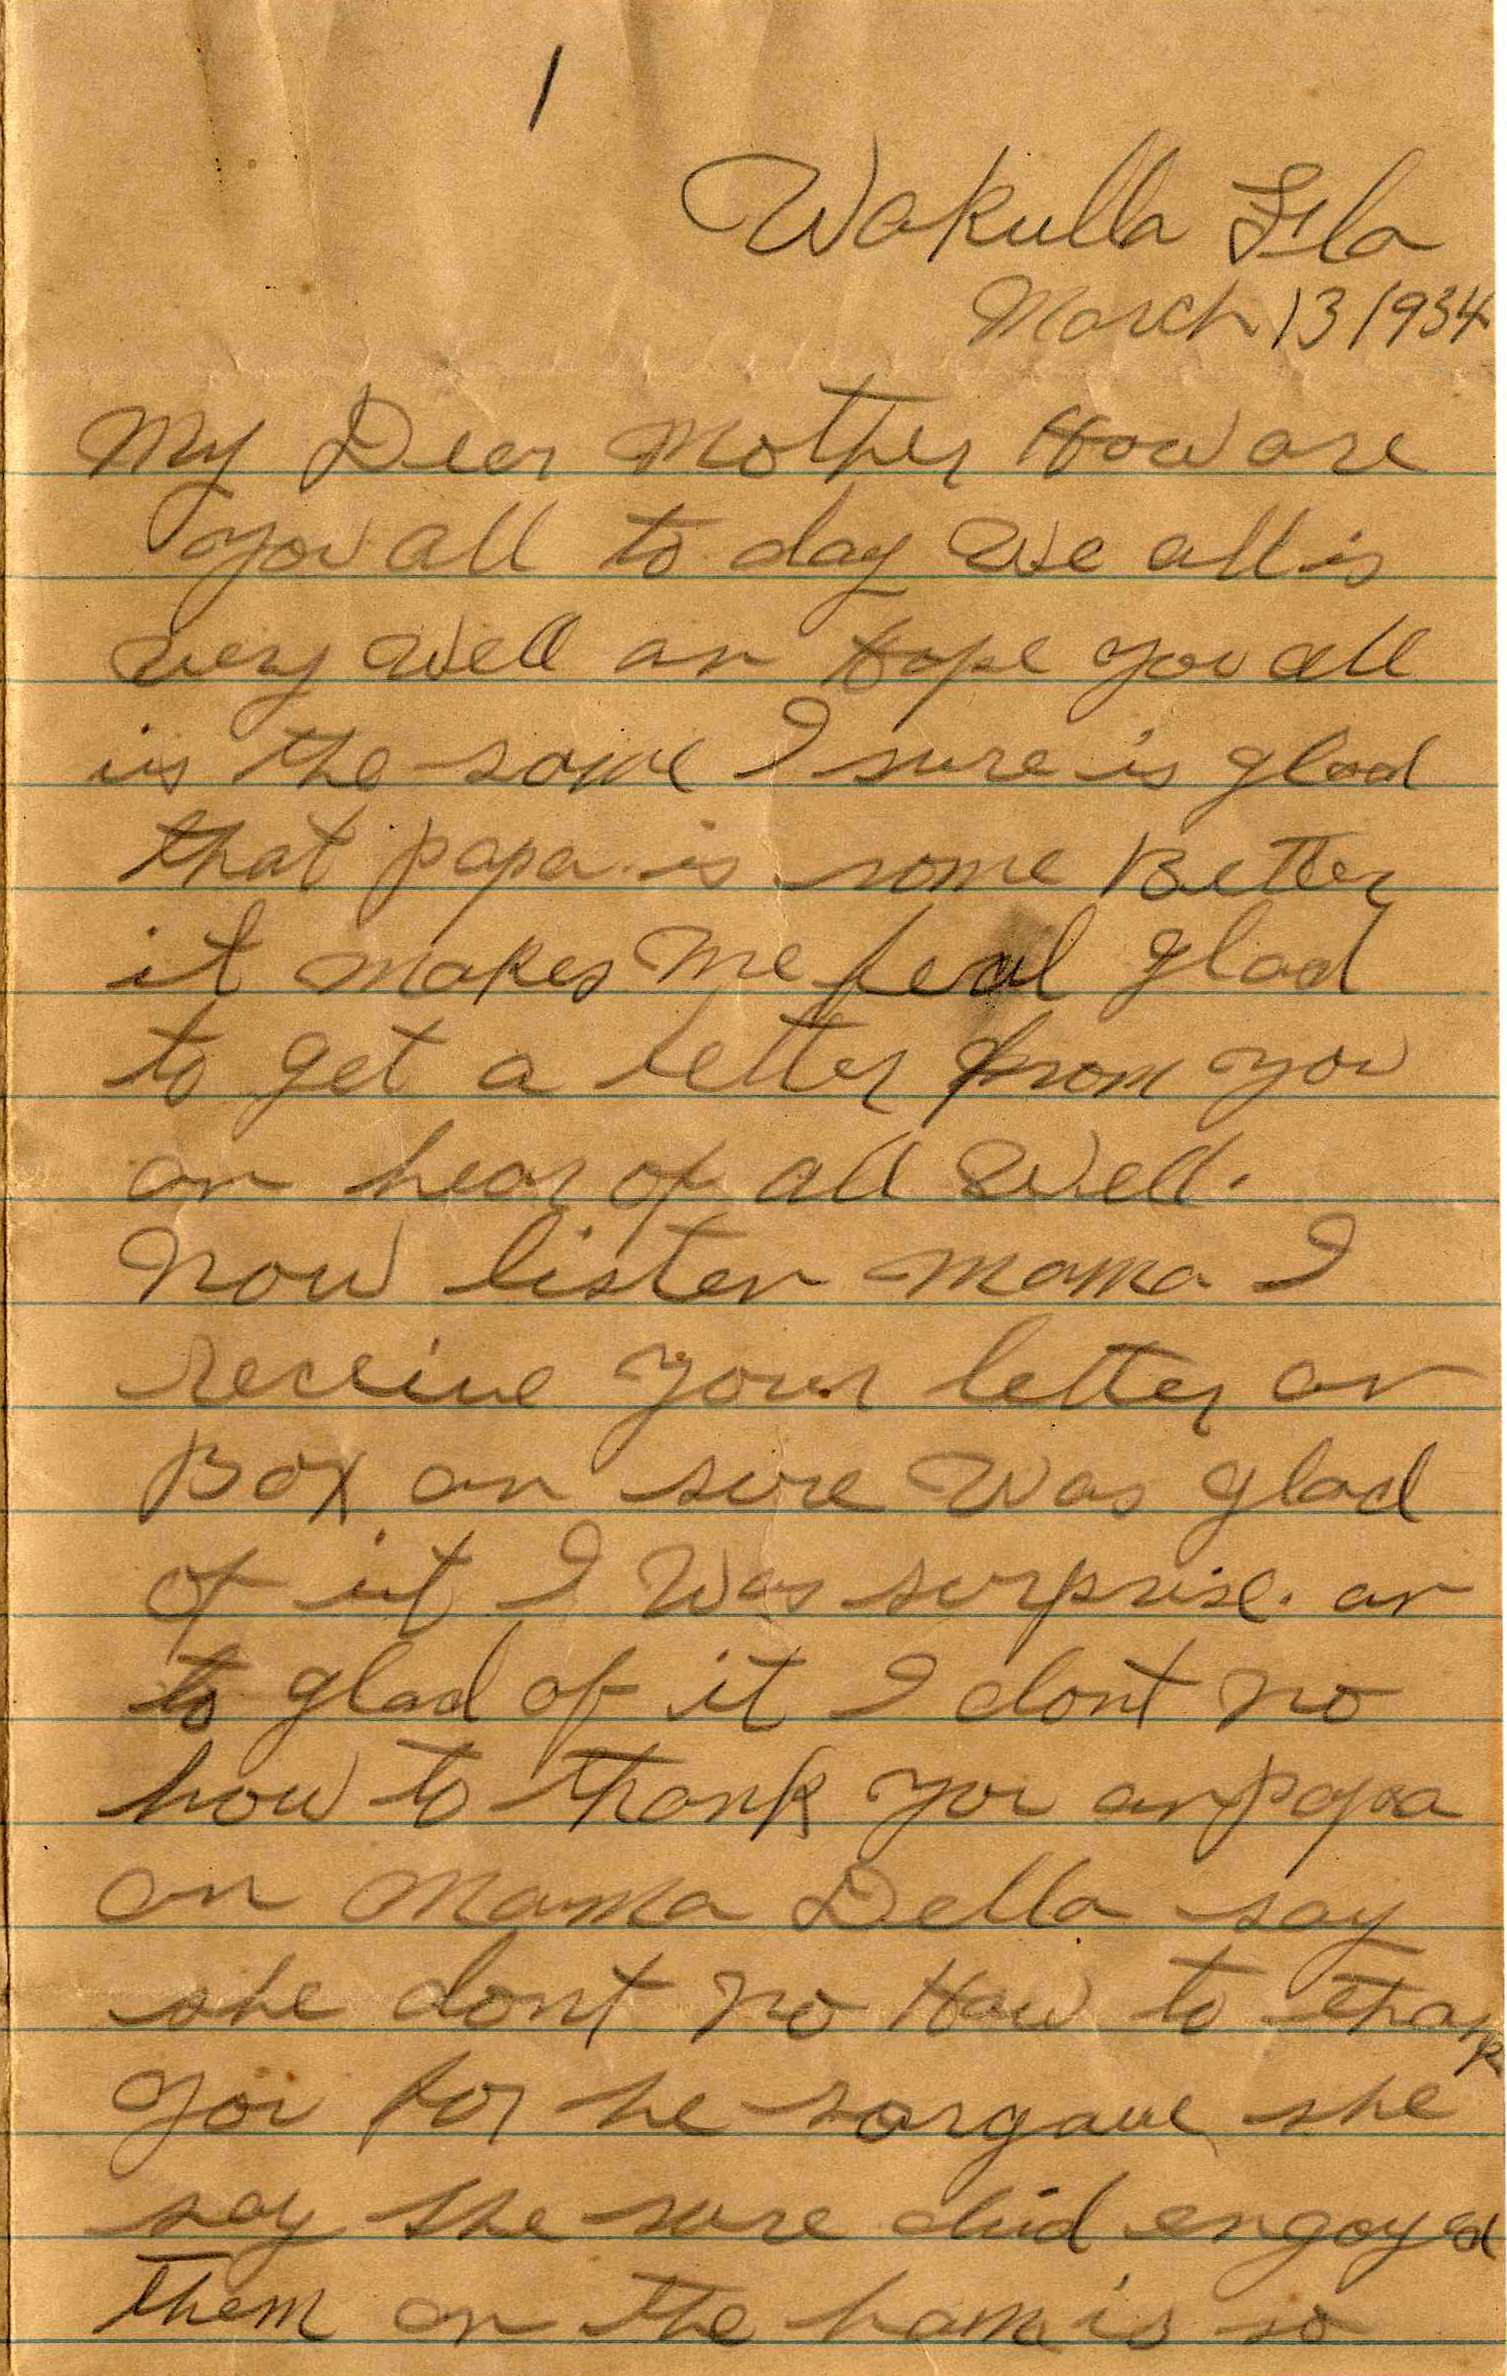 1
Wakulla Fla
March 13 1934
My Dear Mother How are
you all to day We all is
very well an Hope you all
is the same I sure is glad
that papa is some Better
it makes me feal glad
to get a letter from you
an hear of all well.
Now listen mama I
receive your letter an
Box an sure was glad
of it I was surprise. an
to glad of it I dont no
how to thank you an papa
an Mama Della say
she dont no How to thank
you for he sargaue she
say she sure did engoyed
them an the ham is so